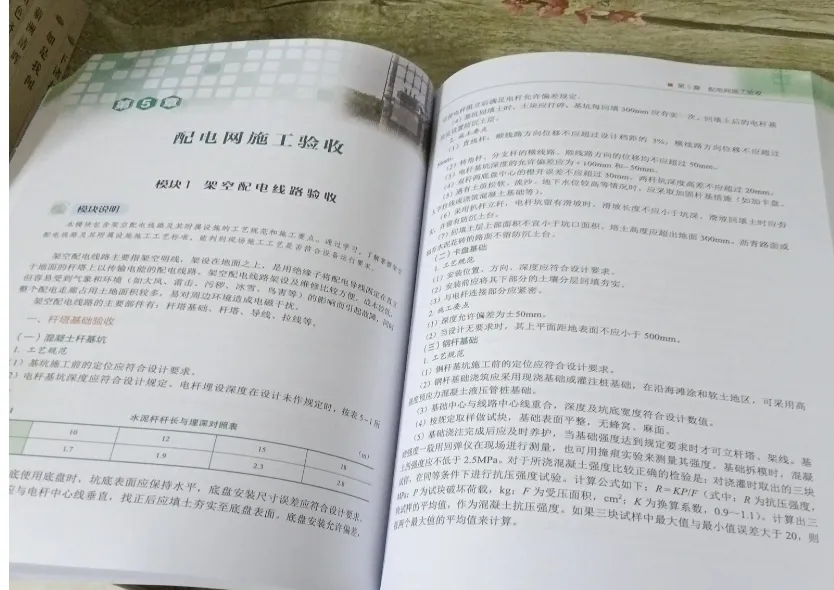 第5章
配电网施工验收
模块1 架空配电线路验收
模块说明
本模块包含架空配电线路及其附属设施的工艺规范和施工要点。通过学习，了解掌握架空
配电线路及其附属设施施工工艺标准，能判别现场施工工艺是否符合设备运行要求。
架空配电线路主要指架空明线，架设在地面之上，是用绝缘子将配电导线固定在直立
于地面的杆塔上以传输电能的配电线路。架空配电线路架设及维修比较方便，成本较低，
但容易受到气象和环境（如大风、雷击、污秽、冰雪、鸟害等）的影响而引起故障，同时
整个配电走廊占用土地面积较多，易对周边环境造成电磁干扰。
架空配电线路的主要部件有：杆塔基础、杆塔、导线、拉线等。
一、杆塔基础验收
（一）混凝土杆基坑
1. 工艺规范
（1）基坑施工前的定位应符合设计要求。
2）电杆基坑深度应符合设计规定。电杆埋设深度在设计未作规定时，按表5-1所
水泥杆杆长与埋深对照表
(m)
10 12 15 18
1.7 1.9 2.3 2.8
底使用底盘时，坑底表面应保持水平，底盘安装尺寸误差应符合设计要求。
应与电杆中心线垂直，找正后应填土夯实至底盘表面。底盘安装允许偏差，
第5章 配电网施工验收
应使电杆组立后满足电杆允许偏差规定。
（4）基坑回填土时，土块应打碎，基坑每回填300mm应夯实一次，回填土后的电杆基
2. 施工要点
（1）直线杆：顺线路方向位移不应超过设计档距的 3%，横线路方向位移不应超过
50mm。
（2）转角杆、分支杆的横线路、顺线路方向的位移均不应超过50mm。
（3）电杆基坑深度的允许偏差应为＋100mm 和－50mm。
（4）双杆两底盘中心的根开误差不应超过30mm，两杆坑深度高差不应超过20mm。
（5）遇有土质松软、流沙、地下水位较高等情况时，应采取加固杆基措施（如加卡盘、
（6）采用扒杆立杆，电杆坑留有滑坡时，滑坡长度不应小于坑深，滑坡回填土时应夯
实，并留有防沉土台。
（7）回填土层上部面积不宜小于坑口面积，培土高度应超出地面 300mm，沥青路面或
砌有水泥花砖的路面不留防沉土台。
（二）卡盘基础
1. 工艺规范
（1）安装位置、方向、深度应符合设计要求。
（2）安装前应将其下部分的土壤分层回填夯实。
（3）与电杆连接部分应紧密。
2. 施工要点
（1）深度允许偏差为±50mm。
（2）当设计无要求时，其上平面距地表面不应小于 500mm。
（三）钢杆基础
1. 工艺规范
（1）钢杆基坑施工前的定位应符合设计要求。
（2）钢杆基础浇筑应采用现浇基础或灌注桩基础，在沿海滩涂和软土地区，可采用高
强度预应力混凝土液压管桩基础。
（3）基础中心与线路中心线重合，深度及坑底宽度符合设计数值。
（4）按规定取样做试块，基础表面平整，无蜂窝、麻面。
（5）基础浇注完成后应及时养护，当基础强度达到规定要求时才可立杆塔、架线。基
础强度一般用回弹仪在现场进行测量，也可用掩痕实验来测量其强度。基础拆模时，混凝
土的强度应不低于 2.5MPa。对于所浇混凝土强度比较正确的检验是：对浇灌时取出的三块
试样，在同等条件下进行抗压强度试验。计算公式如下：R＝KP/F（式中：R 为抗压强度，
kPa；P 为试块破坏荷载，kg；F 为受压面积，cm²；K 为换算系数，0.9～1.1）。计算出三
块试样的平均值，作为混凝土抗压强度。如果三块试样中最大值与最小值误差大于 20，则
取两个最大值的平均值来计算。